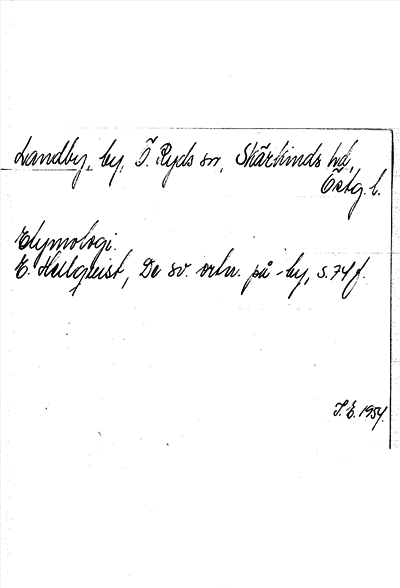 Landby, by, Ö. Ryds sn, Skärkinds hd,
Östg. l.
Etymologi.
E. Hellquist, De sv. ortn. på -by, s. 74 f.
J. E. 1954.